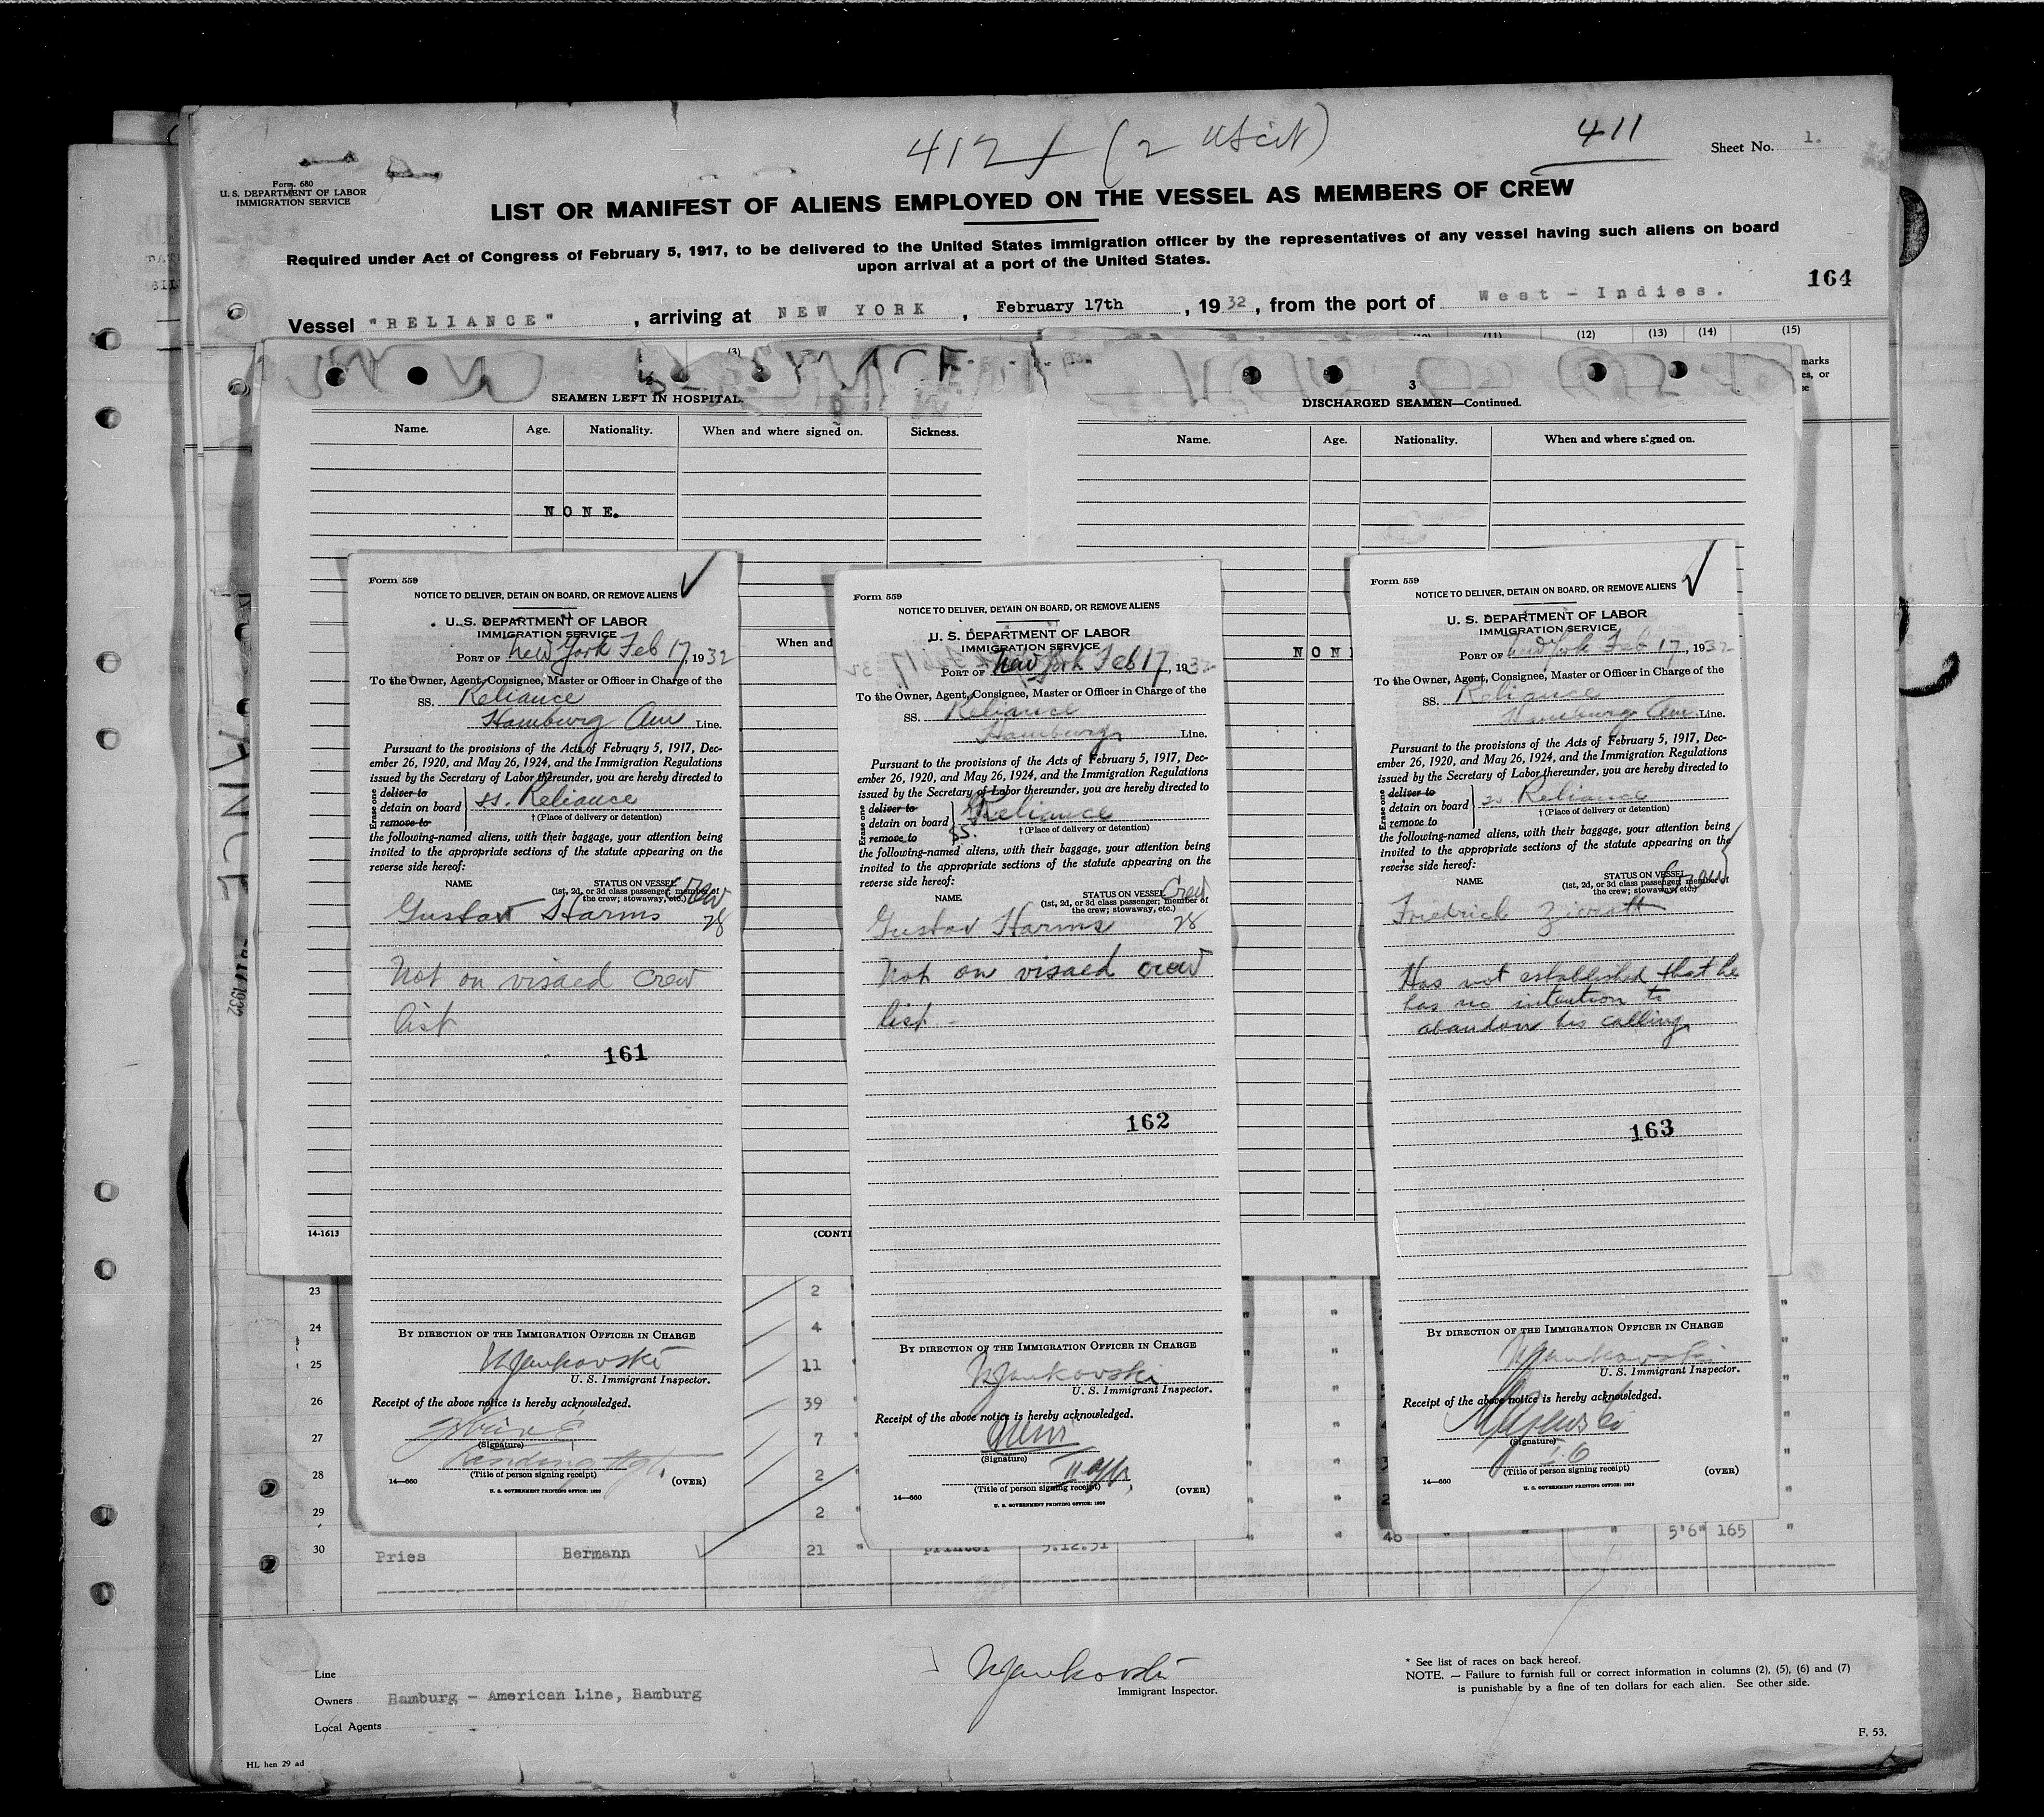 412 (2 US cit)
411
Sheet No. 1.
Form 680
U. S. DEPARTMENT OF LABOR
IMMIGRATION SERVICE
LIST OR MANIFEST OF ALIENS EMPLOYED ON THE VESSEL AS MEMBERS OF CREW
Required under Act of Congress of February 5, 1917, to be delivered to the United States immigration officer by the representatives of any vessel having such aliens on board
upon arrival at a port of the United States.
164
Vessel "RELIANCE" , arriving at NEW YORK , February 17th , 1932 , from the port of West - Indies.
(3) (11) (12) (13) (14) (15)
SEAMEN LEFT IN HOSPITAL.
Name. Age. Nationality. When and where signed on. Sickness.
NONE.
3
DISCHARGED SEAMEN—Continued.
Name. Age. Nationality. When and where signed on.
When and
NON
Form 559
NOTICE TO DELIVER, DETAIN ON BOARD, OR REMOVE ALIENS
U. S. DEPARTMENT OF LABOR
IMMIGRATION SERVICE
PORT OF New York Feb 17, 1932
To the Owner, Agent, Consignee, Master or Officer in Charge of the
SS. Reliance
Hamburg Am Line.
Pursuant to the provisions of the Acts of February 5, 1917, Dec-
ember 26, 1920, and May 26, 1924, and the Immigration Regulations
issued by the Secretary of Labor thereunder, you are hereby directed to
Erase one
deliver to
detain on board
remove to
ss. Reliance
† (Place of delivery or detention)
the following-named aliens, with their baggage, your attention being
invited to the appropriate sections of the statute appearing on the
reverse side hereof:
NAME
STATUS ON VESSEL
(1st, 2d, or 3d class passenger, member of
the crew; stowaway, etc.)
Crew
Gustav Harms 28
Not on visaed crew
list
161
BY DIRECTION OF THE IMMIGRATION OFFICER IN CHARGE
Jankovski
U. S. Immigrant Inspector.
Receipt of the above notice is hereby acknowledged.
(Signature)
Landing Agt.
(Title of person signing receipt)
14—660
(OVER)
U. S. GOVERNMENT PRINTING OFFICE: 1929
Form 559
NOTICE TO DELIVER, DETAIN ON BOARD, OR REMOVE ALIENS
U. S. DEPARTMENT OF LABOR
IMMIGRATION SERVICE
PORT OF New York Feb 17, 1932
To the Owner, Agent, Consignee, Master or Officer in Charge of the
SS. Reliance
Hamburg Line.
Pursuant to the provisions of the Acts of February 5, 1917, Dec-
ember 26, 1920, and May 26, 1924, and the Immigration Regulations
issued by the Secretary of Labor thereunder, you are hereby directed to
Erase one
deliver to
detain on board
remove to
SS. Reliance
† (Place of delivery or detention)
the following-named aliens, with their baggage, your attention being
invited to the appropriate sections of the statute appearing on the
reverse side hereof:
NAME
STATUS ON VESSEL
(1st, 2d, or 3d class passenger; member of
the crew; stowaway, etc.)
Crew
Gustav Harms 28
Not on visaed crew
list -
162
BY DIRECTION OF THE IMMIGRATION OFFICER IN CHARGE
Jankovski
U. S. Immigrant Inspector.
Receipt of the above notice is hereby acknowledged.
(Signature)
II Offr.
(Title of person signing receipt)
14—660
(OVER)
U. S. GOVERNMENT PRINTING OFFICE: 1929
Form 559
NOTICE TO DELIVER, DETAIN ON BOARD, OR REMOVE ALIENS
U. S. DEPARTMENT OF LABOR
IMMIGRATION SERVICE
PORT OF New York Feb 17, 1932
To the Owner, Agent, Consignee, Master or Officer in Charge of the
SS. Reliance
Hamburg Am Line.
Pursuant to the provisions of the Acts of February 5, 1917, Dec-
ember 26, 1920, and May 26, 1924, and the Immigration Regulations
issued by the Secretary of Labor thereunder, you are hereby directed to
Erase one
deliver to
detain on board
remove to
ss Reliance
† (Place of delivery or detention)
the following-named aliens, with their baggage, your attention being
invited to the appropriate sections of the statute appearing on the
reverse side hereof:
NAME
STATUS ON VESSEL
(1st, 2d, or 3d class passenger, member of
the crew; stowaway, etc.)
Crew
Friedrich
Has not established that he
has no intention to
abandon his calling
163
BY DIRECTION OF THE IMMIGRATION OFFICER IN CHARGE
Jankovski
U. S. Immigrant Inspector.
Receipt of the above notice is hereby acknowledged.
(Signature)
(Title of person signing receipt)
14—660
(OVER)
U. S. GOVERNMENT PRINTING OFFICE: 1929
14-1613
(CONTI
23 2 " "
24 4 " "
25 11 " "
26 39 " "
27 7 " "
28 2 " "
29 2 " " 5'6" 165 "
30 Pries Hermann 21 " printer 5.12.31
Line
Owners Hamburg - American Line, Hamburg
Local Agents
Jankovski
Immigrant Inspector.
* See list of races on back hereof.
NOTE. — Failure to furnish full or correct information in columns (2), (5), (6) and (7)
is punishable by a fine of ten dollars for each alien. See other side.
F. 53.
HL hen 29 ad